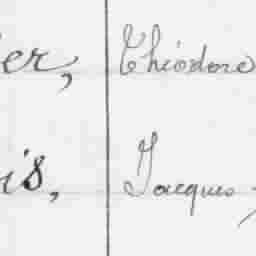 er, Théodore
is, Jacques